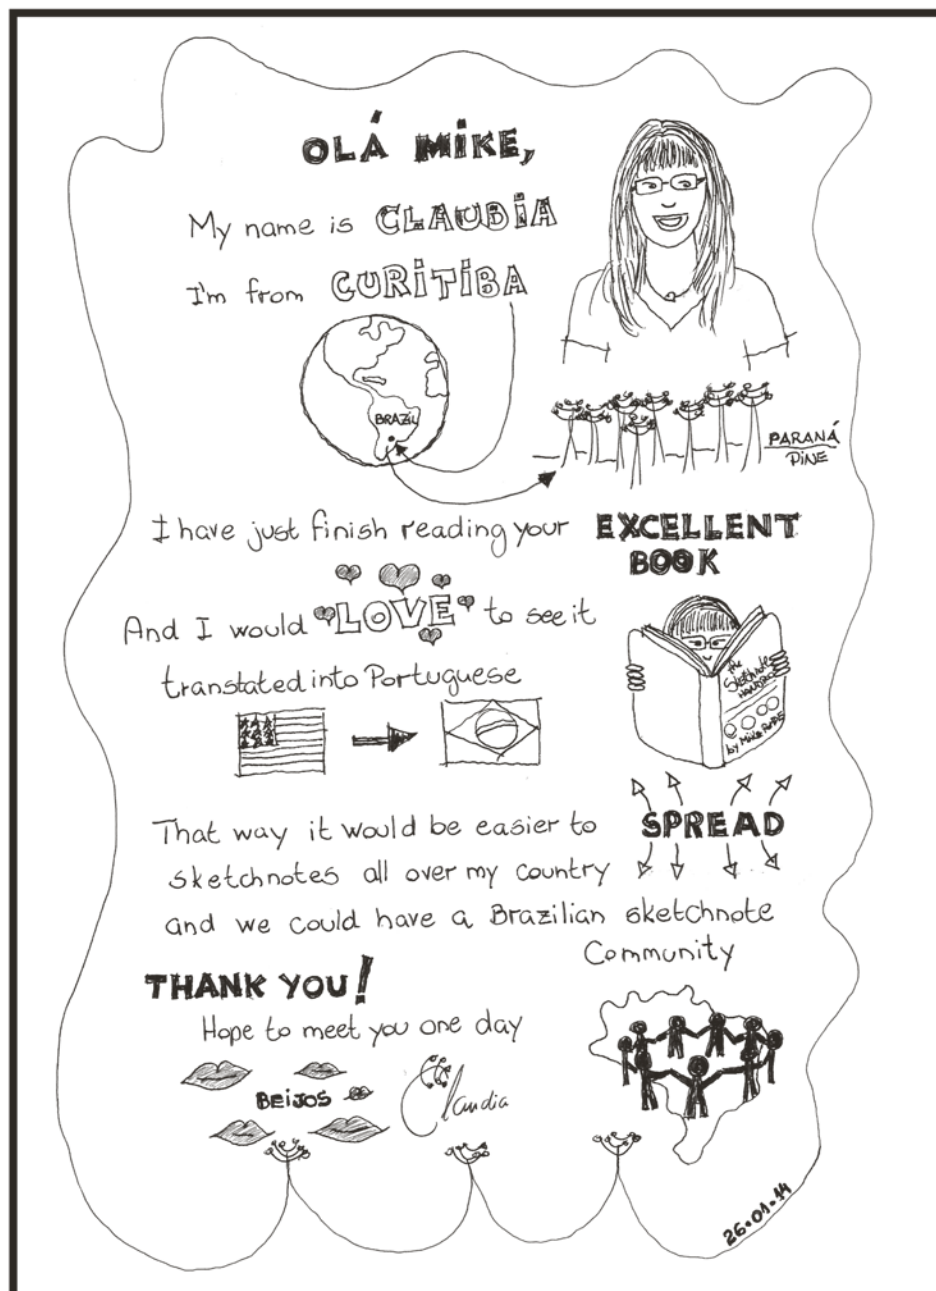 OLÁ MIKE,
My name is CLAUDIA
I'm from CURITIBA
BRAZIL
PARANÁ
PINE
I have just finish reading your EXCELLENT
BOOK
And I would LOVE to see it
translated into Portuguese
the
Sketchnote
HANDBOOK
by Mike Rohde
That way it would be easier to SPREAD
sketchnotes all over my country
and we could have a Brazilian sketchnote
Community
THANK YOU!
Hope to meet you one day
BEIJOS
Claudia
26.01.14